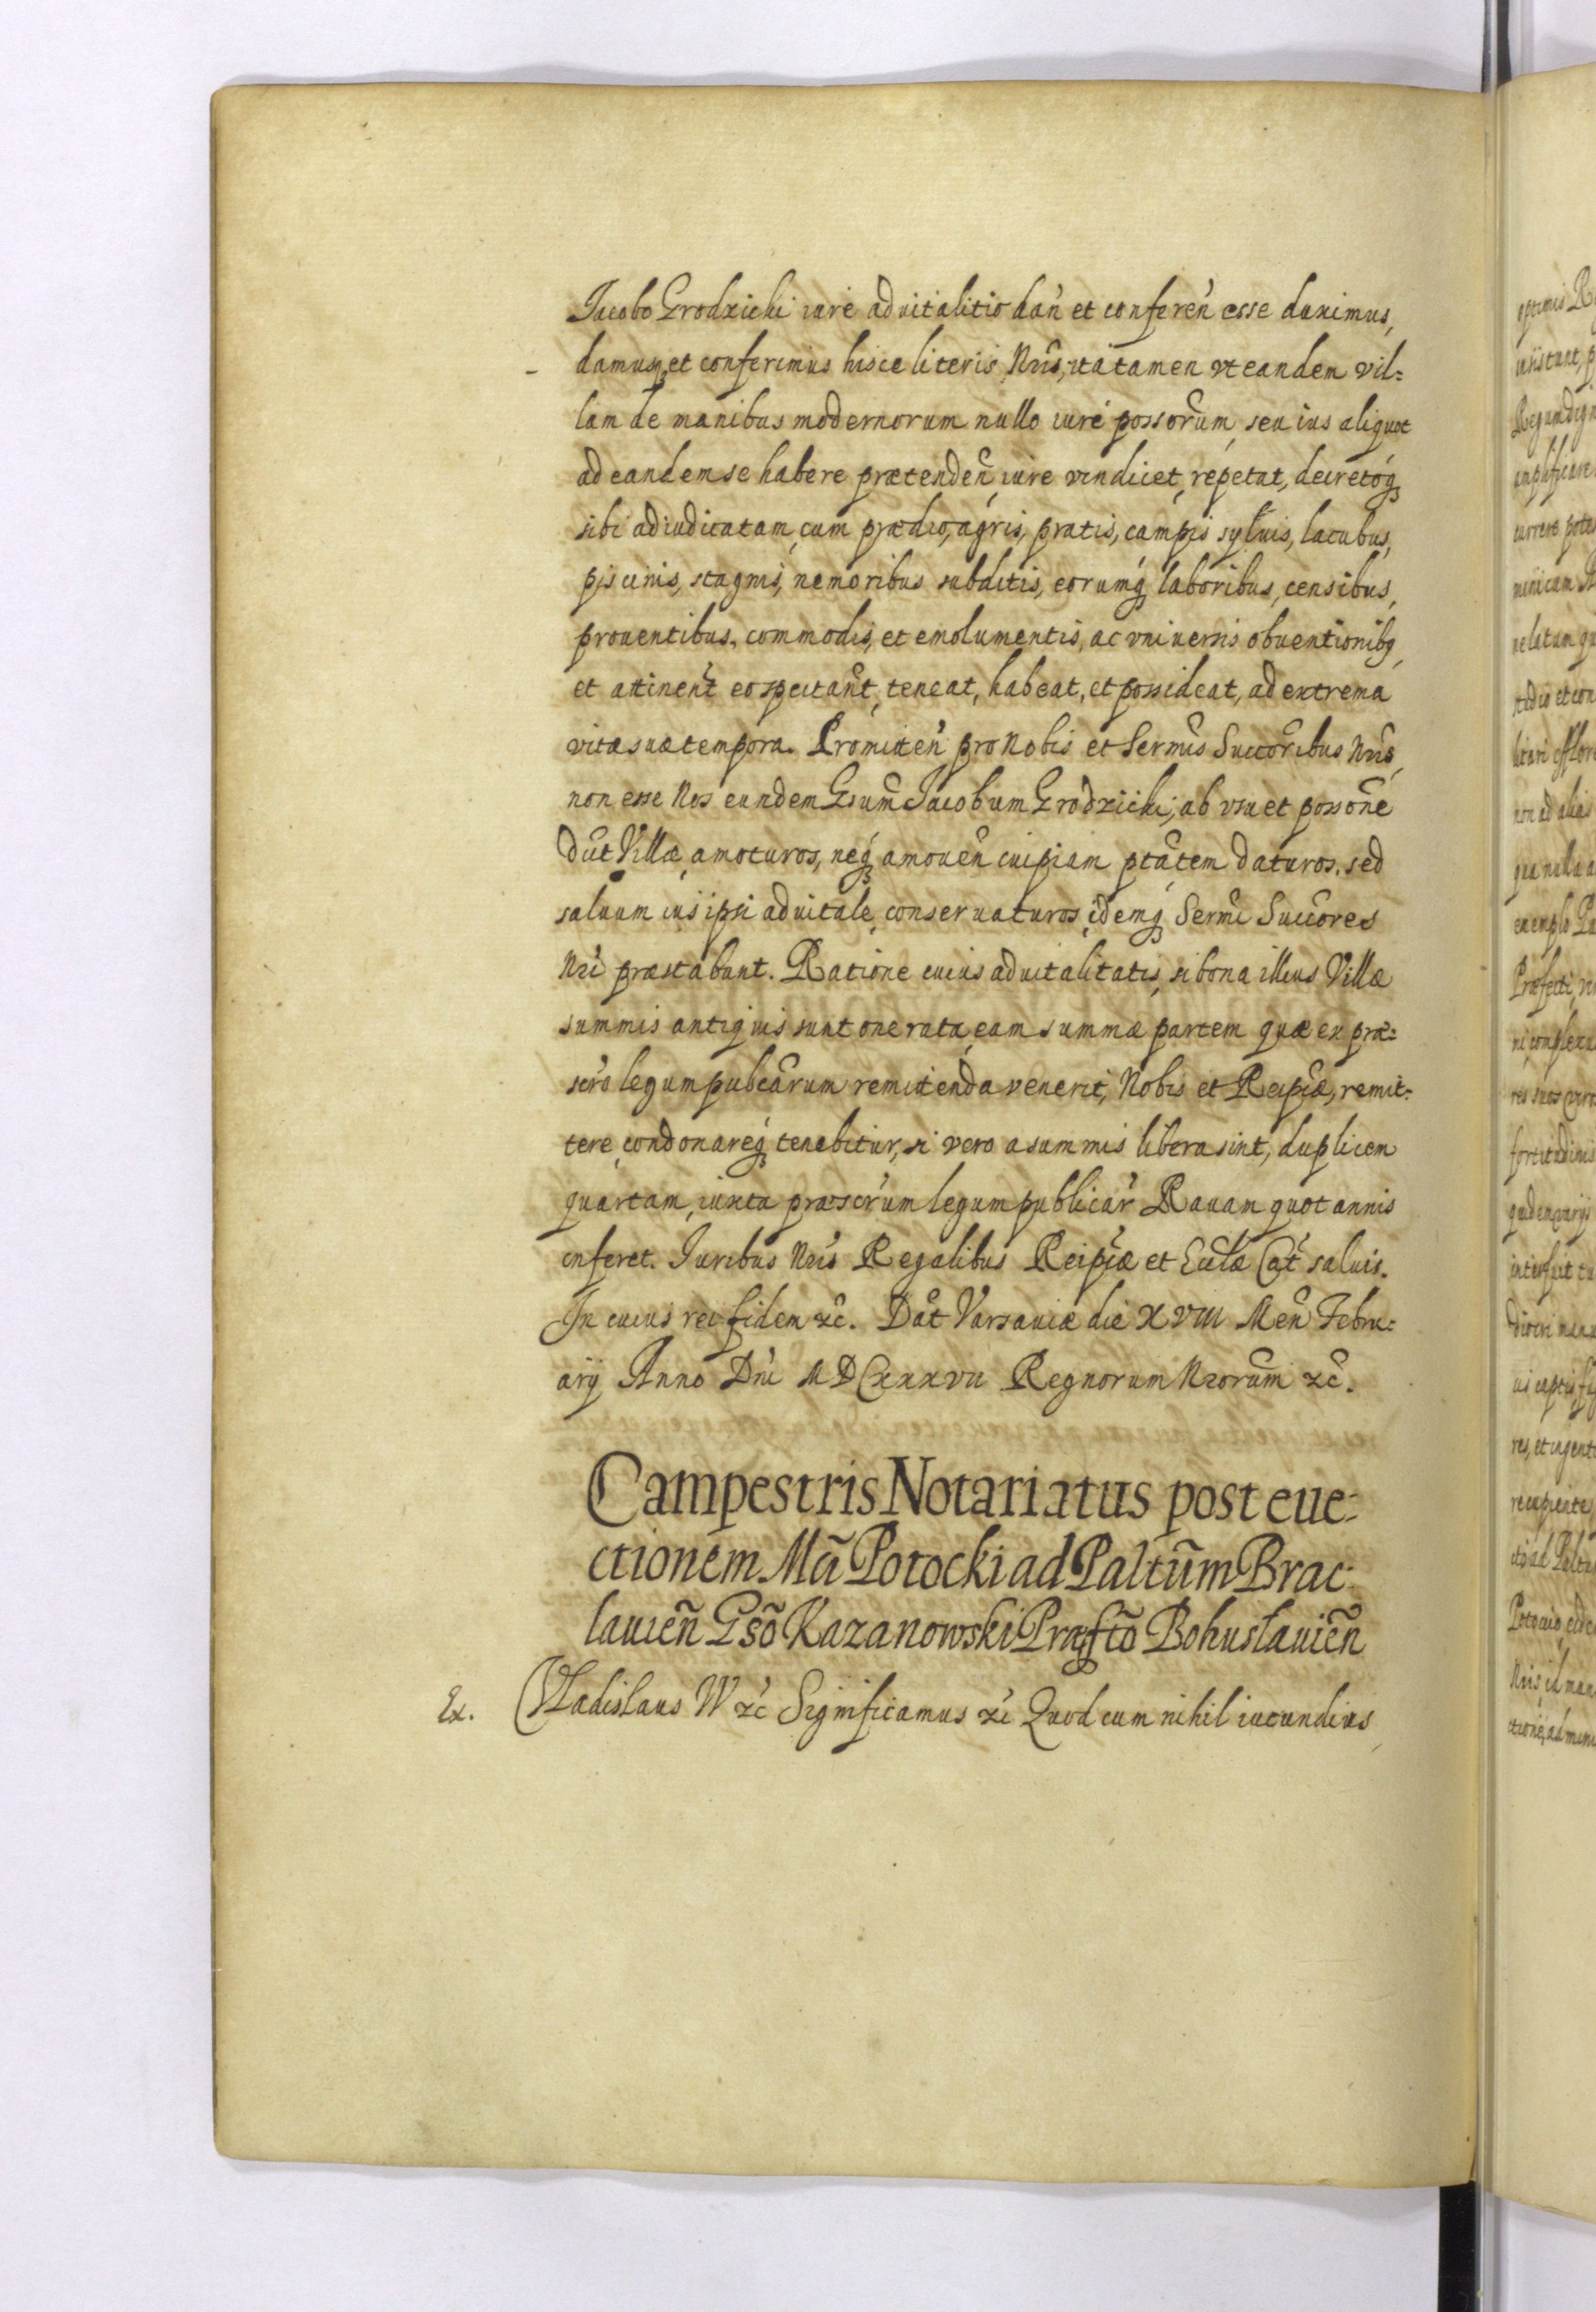 Jacobo Grodzicki iure aduitalitio dan̄ et conferen̄ esse duximus,
damusq; et conferimus hisce literis Nr̄is, ita tamen vt eandem vil=
lam de manibus modernorum nullo iure possor̄um, seu ius aliquot
ad eandem se habere prætenden̄, iure vindicet, repetat, decretoq;
sibi adiudicatam, cum prædio, agris, pratis, campis syluis, lacubus,
piscinis, stagnis, nemoribus subditis, eorumq; laboribus, censibus,
prouentibus, commodis, et emolumentis, ac vniuersis obuentionibq;
et attinen̄t eo spectan̄t, teneat, habeat, et possideat, ad extrema
vitæ suæ tempora. Promitten̄ pro Nobis et Serm̄is Succor̄ibus Nr̄is,
non esse Nos eundem Gsum̄ Jacobum Grodzicki, ab vsu et posson̄e
dūt Villæ, amoturos, neq; amouen̄ cuipiam ptātem daturos. sed
saluum ius ipsi aduitale, conseruaturos, idemq; Serm̄i Succores
Nr̄i præstabunt. Ratione cuius aduitalitatis, si bona illius Villæ
summis antiquis sunt onerata, eam summæ partem quæ ex præ=
scr̄o legum pubcārum remittenda venerit, Nobis et Reipcæ, remit=
tere, condonareq; tenebitur, si vero a summis libera sint, duplicem
quartam, iuxta præscr̄um legum publicar̄ Rauam quotannis
inferet. Juribus Nr̄is Regalibus Reip̄cæ et Eccl̄æ Cat̄ saluis.
In cuius rei fidem &c̄. Dāt Varsauiæ die XVIII Men̄ Febru=
arij Anno Dn̄i MDCxxxvii Regnorum Nror̄um &c̄.
Campestris Notariatus post eue=
ctionem Mā Potocki ad Paltūm Brac=
lauien̄ Gsō Kazanowski Præfctō Bohuslauien̄
Ex. Vladislaus IV &c̄ Significamus &c̄ Quod cum nihil iucundius